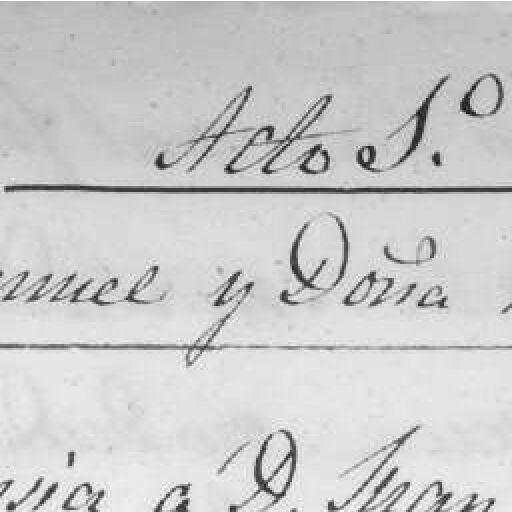 Acto 1.º
nuel y Doña
sia á D. Juan